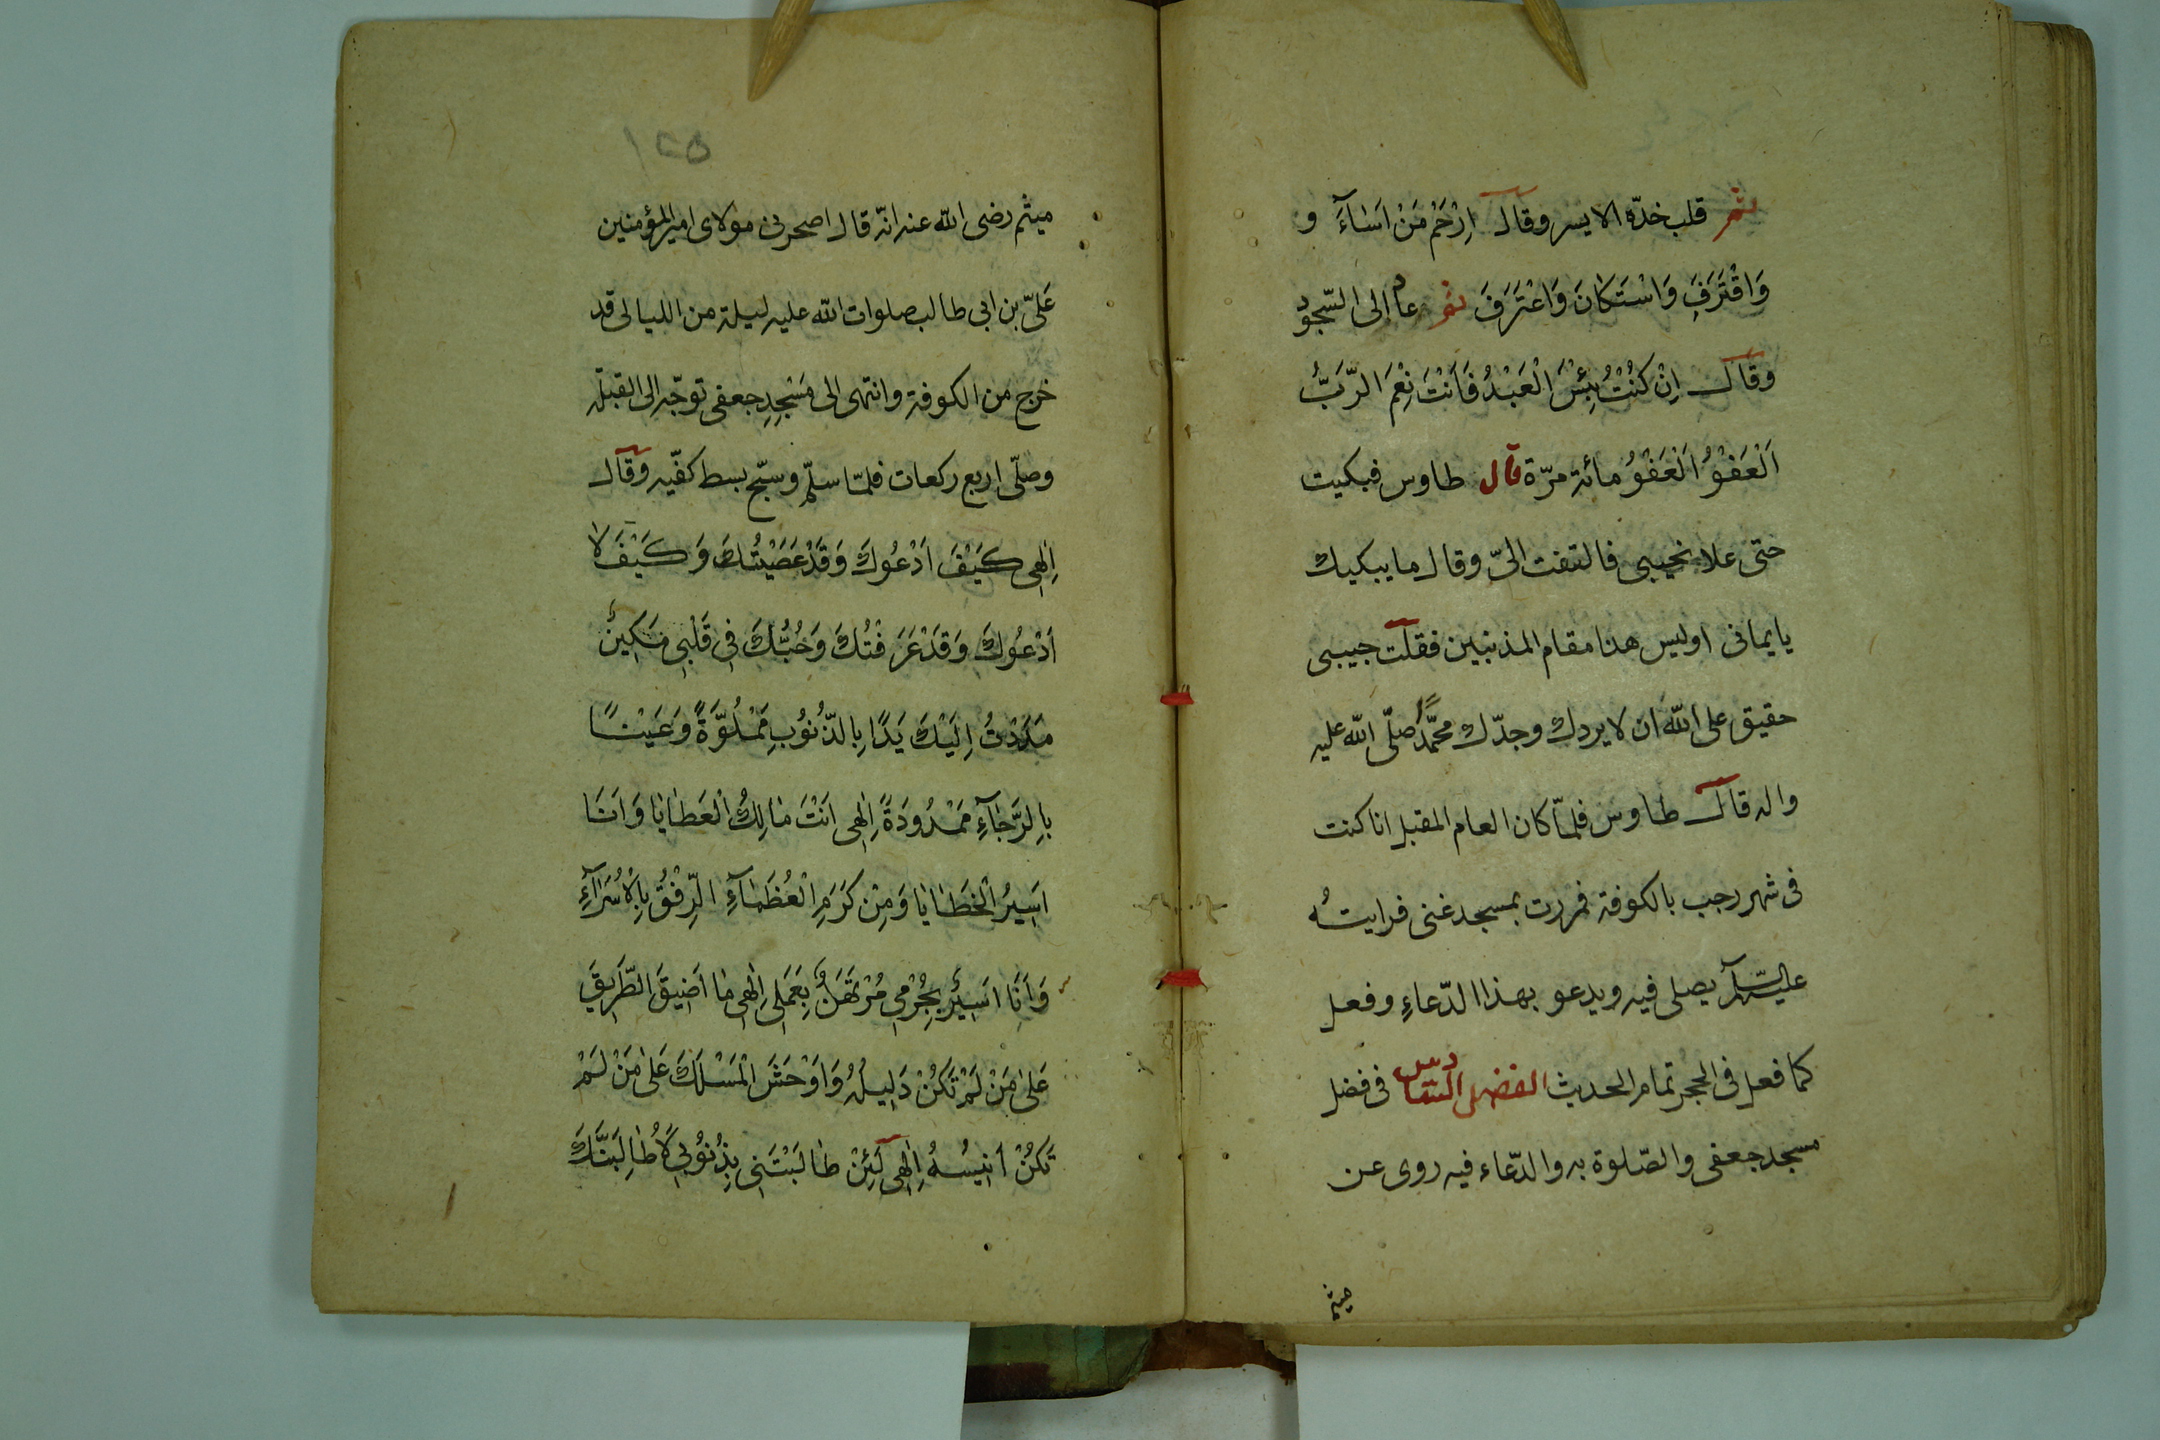 ثم قلب خدّه الايسر وقال اِرْحَمْ مَنْ اَسَآءَ و
وَاقْتَرَفَ وَاسْتَكَانَ وَاعْتَرَفَ ثم عاد الى السّجود
وقال اِنْ كُنْتُ بِئْسَ الْعَبْدُ فَاَنْتَ نِعْمَ الرَّبُّ
اَلْعَفْوُ اَلْعَفْوُ مائة مرّة قال طاوس فبكيت
حتى علا نحيبى فالتفت الىّ وقال ما يبكيك
يا يمانى اوليس هذا مقام المذنبين فقلت حبيبى
حقيق على الله ان لا يردك وجدّك محمّدٌ صلّى الله عليه
واله قال طاوس فلمّا كان العام المقبل انا كنت
فى شهر رجب بالكوفة فمررت بمسجد غنى فرايتهُ
عليه السّلام يصلى فيه ويدعو بهذا الدّعاءِ وفعل
كما فعل فى الحجر تمام الحديث الفضل السادس فى فضل
مسجد جعفى والصّلوة به والدّعاء فيه روى عن
ميثم
١٥٥
ميثم رضى الله عنه انّه قال اصحرنى مولاى امير المؤمنين
عَلىّ بن ابى طالب صلوات الله عليه ليلة من الليالى قد
خرج من الكوفة وانتهى الى مَسْجِدِ جعفى توجّه الى القبلة
وصلّى اربع ركعات فلمّا سلّم وسبّح بسط كفّيه وقال
اِلٰهِى كَيْفَ اَدْعُوكَ وَقَدْ عَصَيْتُكَ وَكَيْفَ لا
اَدْعُوكَ وَقَدْ عَرَفْتُكَ وَحُبُّكَ فِى قَلْبِى مَكِينٌ
مَدَدْتُ اِلَيْكَ يَدًا بِالذُّنُوبِ مَمْلُوَّةً وَعَيْنًا
بِالرَّجَآءِ مَمْدُودَةً اِلٰهِى اَنْتَ مَالِكُ الْعَطَايَا وَاَنَا
اَسِيرُ الْخَطَايَا وَمِنْ كَرَمِ الْعُظَمَآءِ الرِّفْقُ بِالْاُسَرَآءِ
وَاَنَا اَسِيرٌ بِجُرْمِى مُرْتَهَنٌ بِعَمَلِى اِلٰهِى مَا اَضِيقَ الطَّرِيقَ
عَلىٰ مَنْ لَمْ تَكُنْ دَلِيلُهُ وَاَوْحَشَ الْمَسْلَكَ عَلىٰ مَنْ لَمْ
تَكُنْ اَنِيسُهُ اِلٰهِى لَئِنْ طَالَبْتَنِى بِذُنُوبِى لَاُطَالِبَنَّكَ